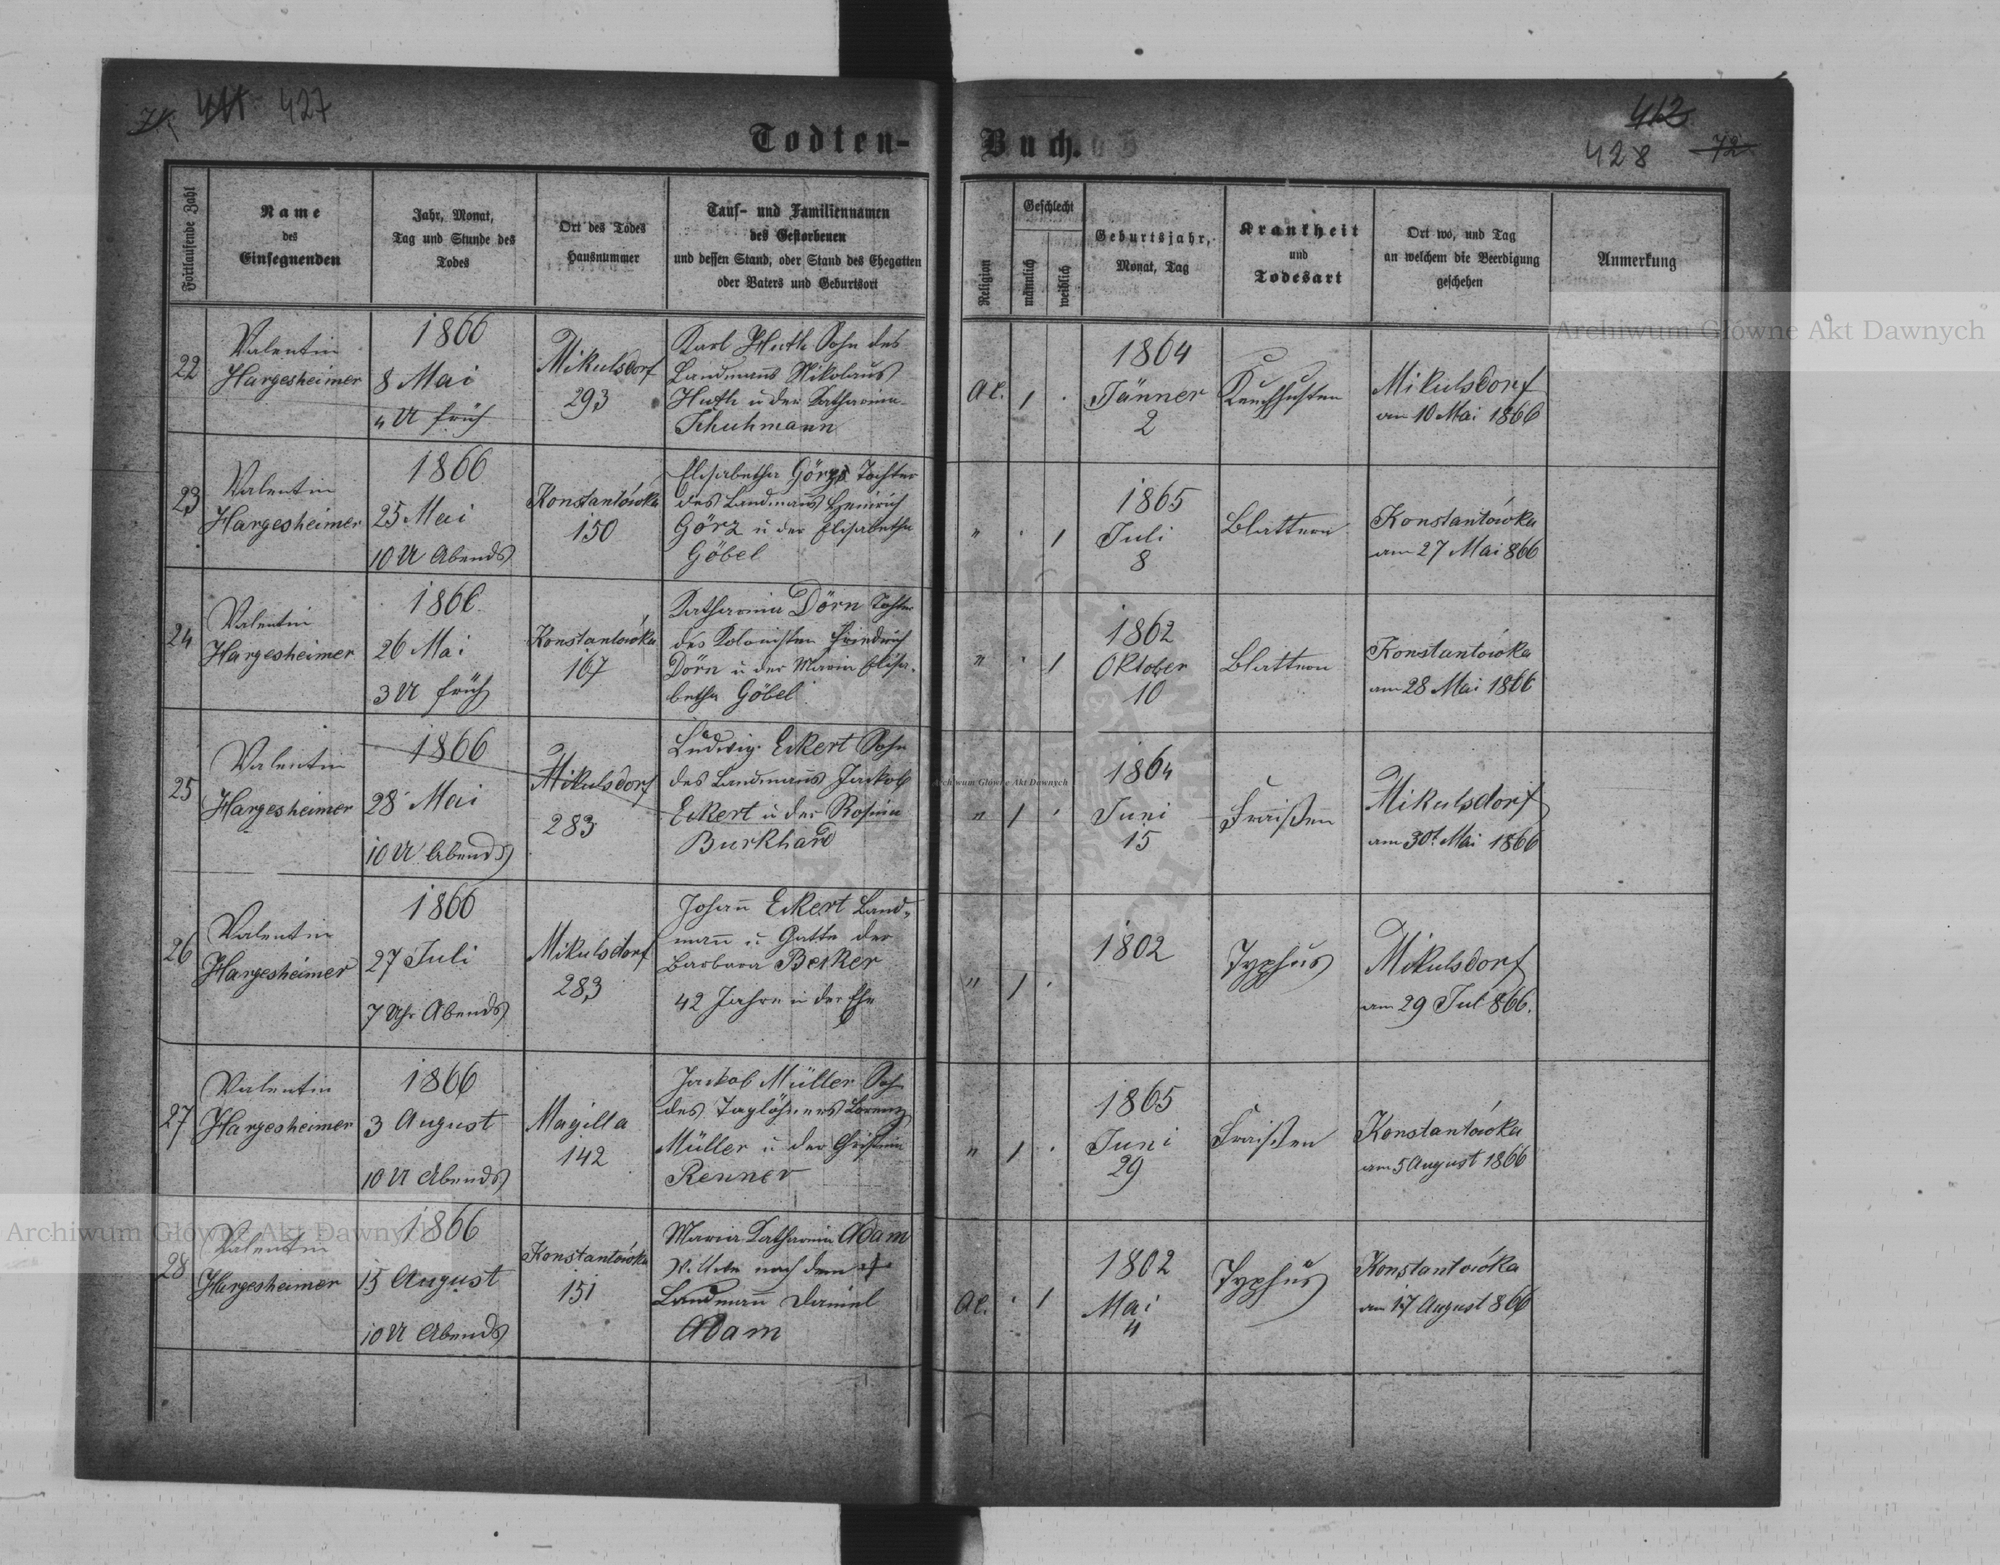 71 411 427
Todten-
Buch.
412
428 72
Fortlaufende Zahl
Name
des
Einsegnenden
Jahr, Monat,
Tag und Stunde des
Todes
Ort des Todes
Hausnummer
Tauf- und Familiennamen
des Gestorbenen
und dessen Stand, oder Stand des Ehegatten
oder Vaters und Geburtsort
Religion
Geschlecht
männlich
weiblich
Geburtsjahr,
Monat, Tag
Krankheit
und
Todesart
Ort wo, und Tag
an welchem die Beerdigung
geschehen
Anmerkung
22
Valentin
Hargesheimer
1866
8 Mai
4 U früh
Mikulsdorf
293
Karl Huth Sohn des
Landmanns Nikolaus
Huth u der Katharina
Schuhmann
Al. / .
1864
Jänner
2
Keuchhusten
Mikulsdorf
am 10 Mai 1866
23
Valentin
Hargesheimer
1866
25 Mai
10 U Abends
Konstantówka
150
Elisabetha Görz Tochter
des Landmans Heinrich
Görz u der Elisabetha
Göbel
" . /
1865
Juli
8
Blattern
Konstantówka
am 27 Mai 866
24
Valentin
Hargesheimer
1866
26 Mai
3 U früh
Konstantówka
167
Katharina Dörn Tochter
des Kolonisten Friedrich
Dörn u der Maria Elisa-
betha Göbel
" . /
1862
Oktober
10
Blattern
Konstantówka
am 28 Mai 1866
25
Valentin
Hargesheimer
1866
28 Mai
10 U Abends
Mikulsdorf
283
Ludwig Eckert Sohn
des Landmanns Jackob
Eckert u der Rosina
Burkhard
" / .
1864
Juni
15
Fraißen
Mikulsdorf
am 30t Mai 1866
26
Valentin
Hargesheimer
1866
27 Juli
7 Uhr Abends
Mikulsdorf
283
Johann Eckert Land-
mann u Gatte der
Barbara Becker
42 Jahre in der Ehe
" / .
1802
Typhus
Mikulsdorf
am 29 Jul 866.
27
Valentin
Hargesheimer
1866
3 August
10 U Abends
Magilla
142
Jackob Müller Sohn
des Taglöhners Lorenz
Müller u der Christina
Renner
" / .
1865
Juni
29
Fraißen
Konstantówka
am 5 August 1866
28
Valentin
Hargesheimer
1866
15 August
10 U Abends
Konstantówka
151
Maria Katharina Adam
Wittwe nach dem †
Landmann Daniel
Adam
Al. . /
1802
Mai
4
Typhus
Konstantówka
am 17 August 866
Archiwum Główne Akt Dawnych
Archiwum Główne Akt Dawnych
Archiwum Główne Akt Dawnych